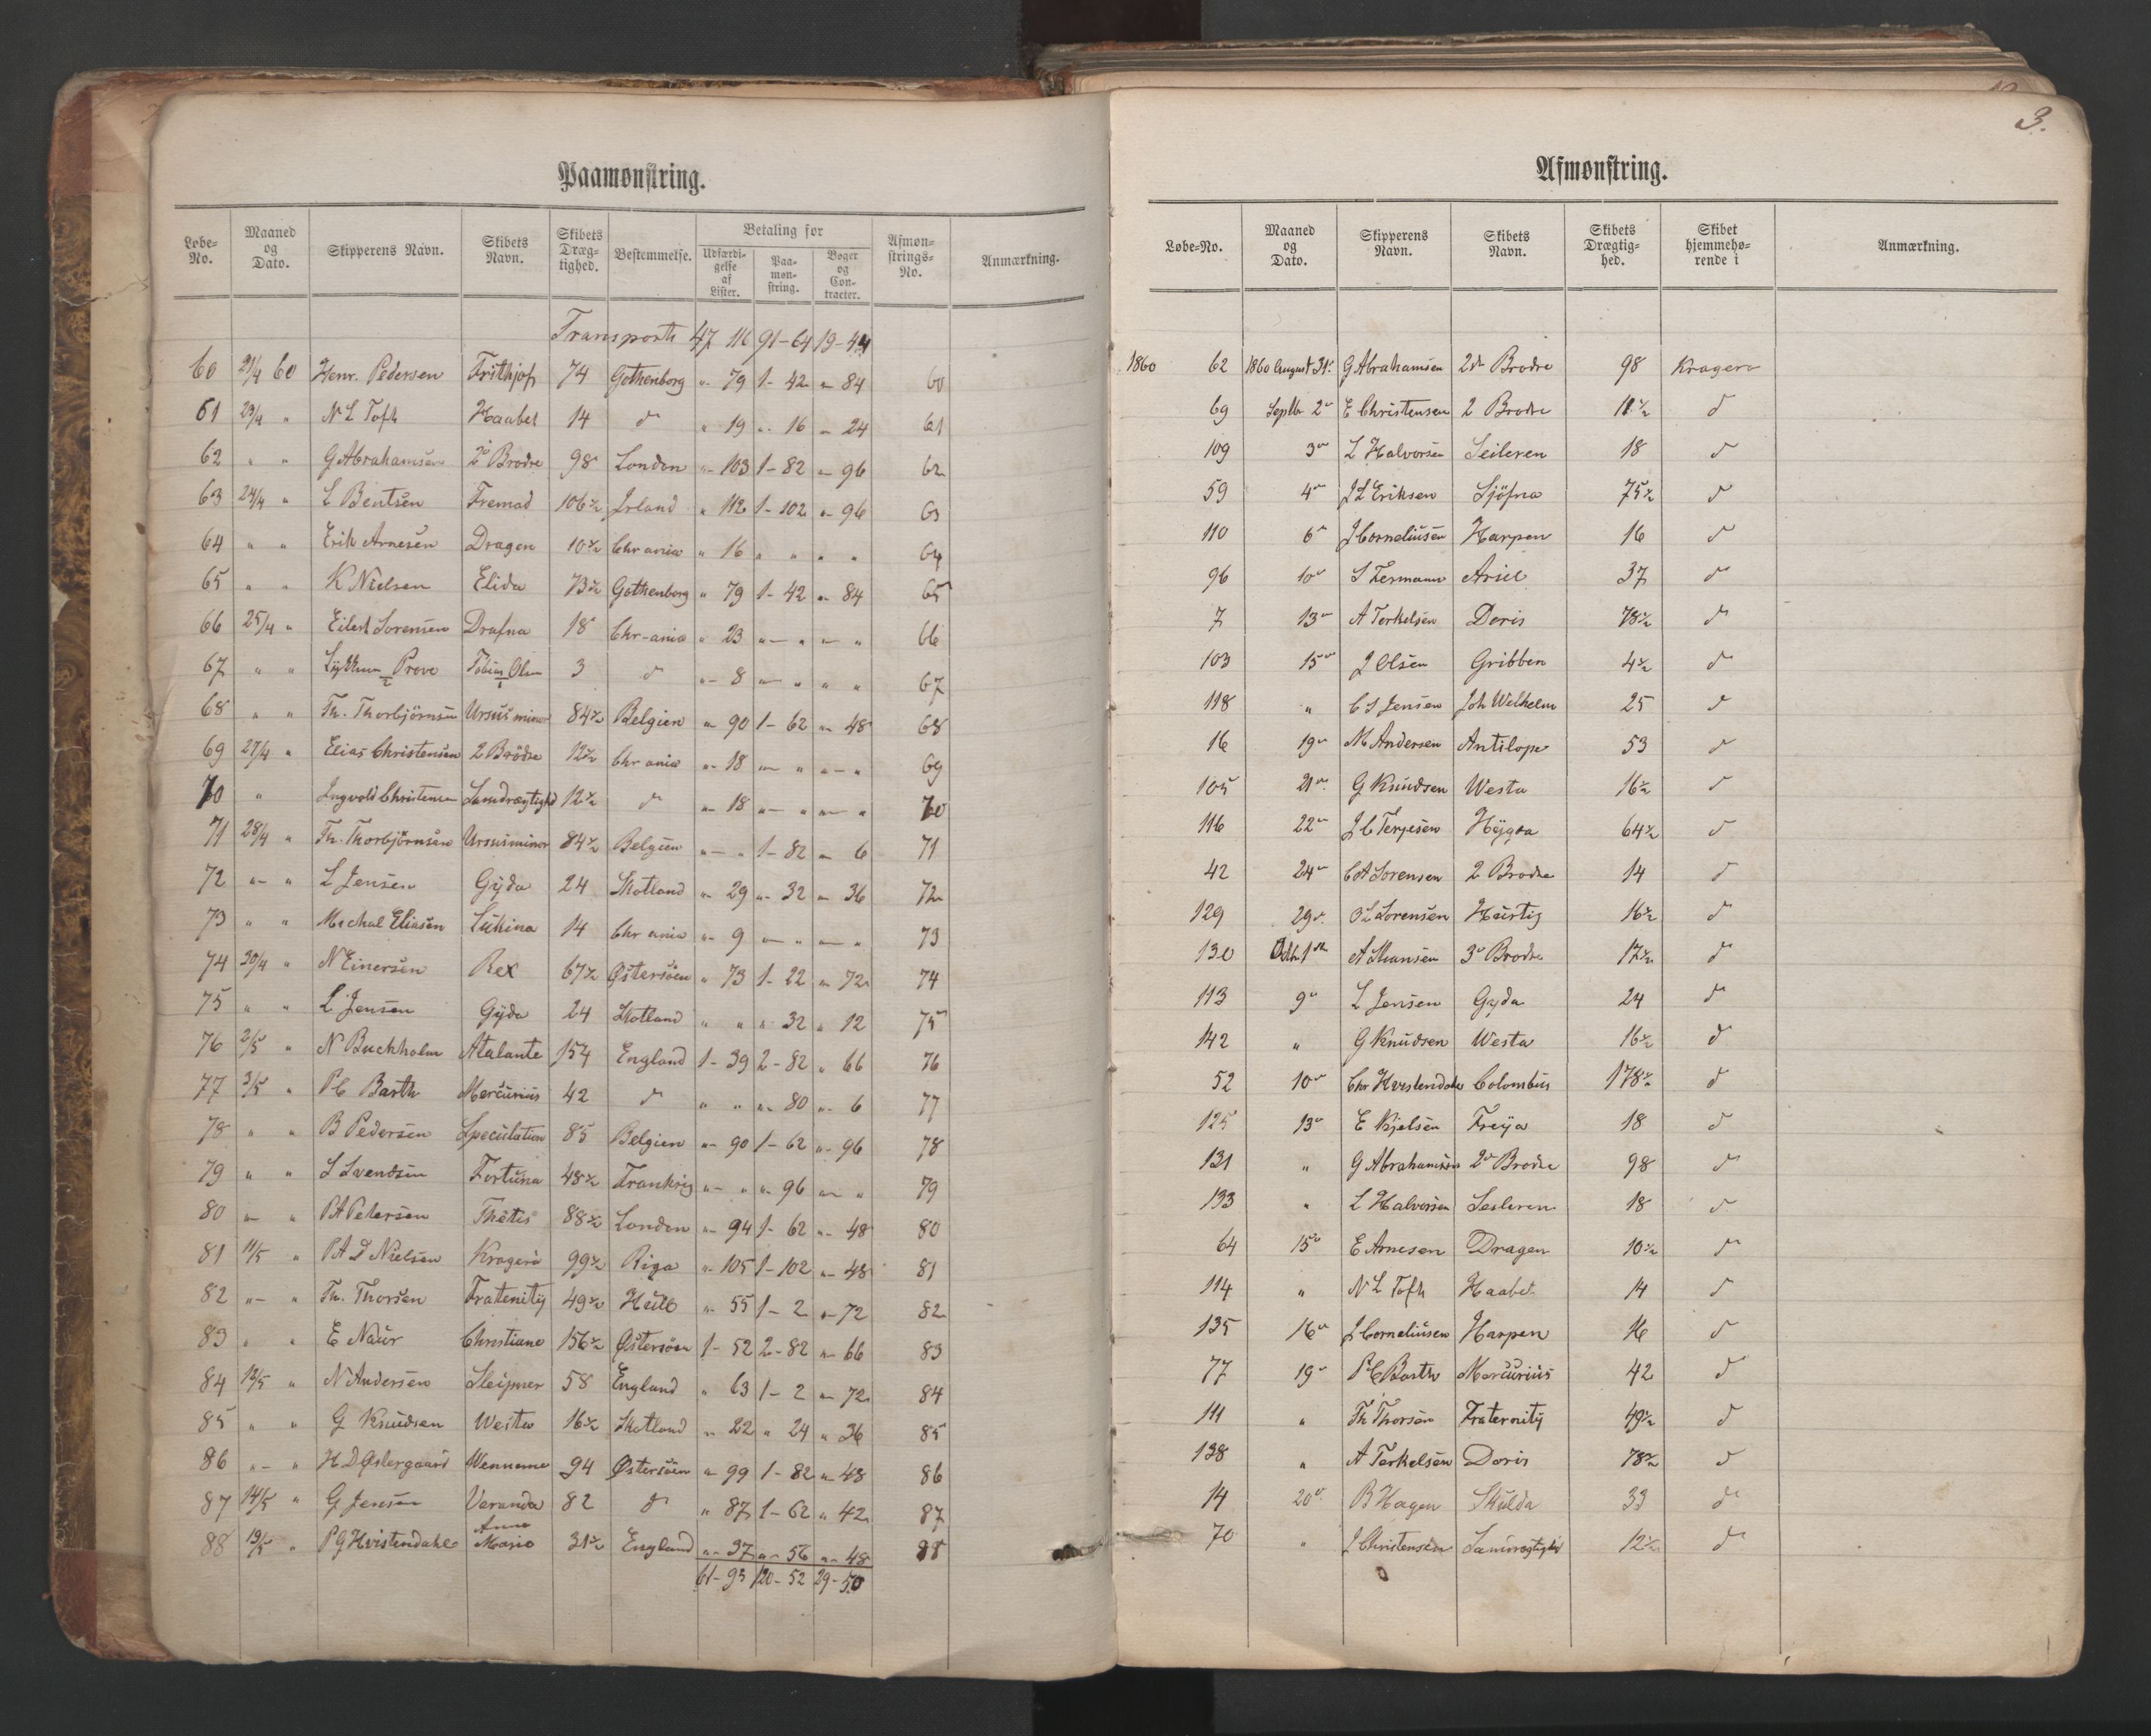 3.
Paamønstring.
Løbe-No. | Maaned og Dato. | Skipperens Navn. | Skibets Navn. | Skibets Drægtighed. | Bestemmelse. | Betaling for | Udfærdigelse af Lister. | Paamønstring. | Bøger og Contracter. | Afmønstrings-No. | Anmærkning.
Transport 47 111 91-64 19-44
60 21/4 60 Henr. Pedersen Frithjof 74 Gothenborg " 79 1-42 " 84 60
61 23/4 " N L Toft Haabet 14 d " 19 " 16 " 24 61
62 " " G Abrahamsen 2de Brødre 98 London " 103 1-82 " 96 62
63 24/4 " L Bentsen Fremad 106½ Irland " 112 1-102 " 96 63
64 " " Erik Arnesen Dragen 10½ Chrania " 16 " " " " 64
65 " " K Nielsen Elida 73½ Gothenborg " 79 1-42 " 84 65
66 25/4 " Eilert Sorensen Drafna 18 Chr-ania " 23 " " " " 66
67 " " Prove Tobias Olsen 3 d " 8 " " " " 67
68 " " Th. Thorbjörnsen Ursus minor 84½ Belgien " 90 1-62 " 48 68
69 27/4 " Elias Christensen 2 Brödre 12½ Chrania " 18 " " " " 69
70 " Ingvald Christensen Samdrægtighed 12½ d " 18 " " " " 70
71 28/4 " Th. Thorbjörnsen Ursus minor 84½ Belgien " " 1-82 " 6 71
72 " " L Jensen Gyda 24 Skotland " 29 " 32 " 36 72
73 " " Michal Eliasen Lukina 14 Chrania " 9 " " " " 73
74 30/4 " N Einersen Rex 67½ Østersöen " 73 1-22 " 72 74
75 " " L Jensen Gyda 24 Skotland " " " 32 " 12 75
76 2/5 " N Buchholm Atalante 154 England 1-39 2-82 " 66 76
77 3/5 " P C Barth Mercurius 42 d " " " 80 " 6 77
78 " " B Pedersen Speculation 85 Belgien " 90 1-62 " 96 78
79 " " S Svendsen Fortuna 48½ Frankrig " " " 96 " " 79
80 " " P A Petersen Thetis 88½ London " 94 1-62 " 48 80
81 11/5 " P A D Nielsen Kragerö 99½ Riga " 105 1-102 " 48 81
82 " " Th. Thorsen Fratenity 49½ Hull " 55 1-2 " 72 82
83 " " E Naur Christiane 156½ Østersöen 1-52 2-82 " 66 83
84 12/5 " N Andersen Sleipner 58 England " 63 1-2 " 72 84
85 " " G Knudsen Westa 16½ Skotland " 22 " 24 " 36 85
86 " " H D Østergaard 94 Østersöen " 99 1-82 " 48 86
87 14/5 " G Jensen Veranda 82 d " 87 1-62 " 42 87
88 19/5 " P G Hvistendahl Anna Marie 31½ England " 37 " 56 " 48 88
61-93 120-52 29-50
Afmønstring.
Løbe-No. | Maaned og Dato. | Skipperens Navn. | Skibets Navn. | Skibets Drægtighed. | Skibet hjemmehørende i | Anmærkning.
1860 62 1860 August 31 G Abrahamsen 2de Brødre 98 Kragerø
69 Septbr 2 E Christensen 2 Brødre 11½ d
109 3 L Halvorsen Seileren 18 d
59 4 J L Eriksen Sjöfna 75½ d
110 6 J Corneliusen Harpen 16 d
96 10 S Fermann Ariel 37 d
7 13 A Terkelsen Doris 78½ d
103 15 J Olsen Gribben 4½ d
118 " C S Jensen Joh Wilhelm 25 d
16 19 M Andersen Antilope 53 d
105 21 G Knudsen Westa 16½ d
116 22 J C Terjesen Hygea 64½ d
42 24 C A Sorensen 2 Brødre 14 d
129 29 O L Sorensen Hurtig 16½ d
130 Octb. 1 A Hansen 3 Brødre 17½ d
113 9 L Jensen Gyda 24 d
142 " G Knudsen Westa 16½ d
52 10 Chr Hvistendahl Colombus 178½ d
125 13 E Kjelsen Freya 18 d
131 " G Abrahamsen 2de Brødre 98 d
133 " L Halvorsen Seileren 18 d
64 15 E Arnesen Dragen 10½ d
114 " N L Toft Haabet 14 d
135 16 J Corneliusen Harpen 16 d
77 19 P C Barth Mercurius 42 d
111 " Th Thorsen Fraternity 49½ d
138 " A Terkelsen Doris 78½ d
14 20 B Hagen Skulda 33 d
70 " J Christensen Samdrægtighed 12½ d